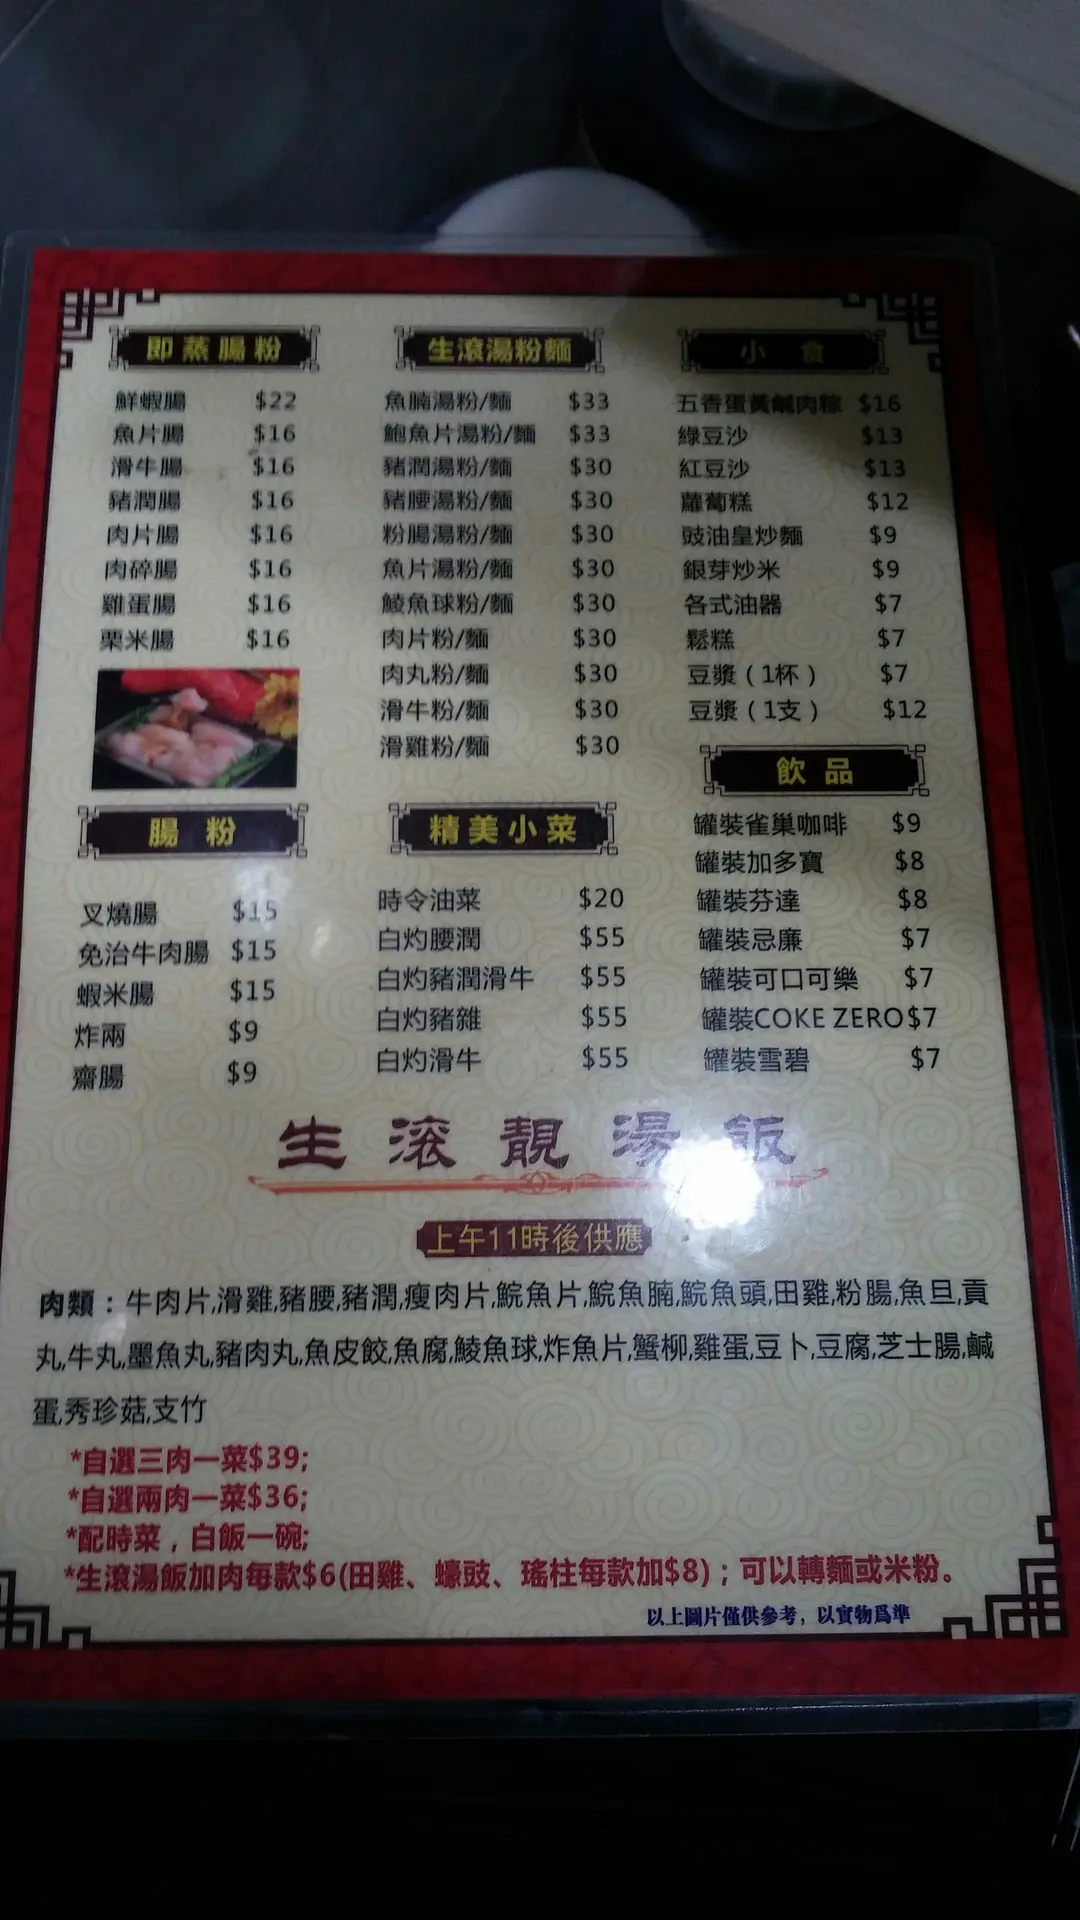 即蒸腸粉
鮮蝦腸 $22
魚片腸 $16
滑牛腸 $16
豬潤腸 $16
肉片腸 $16
肉碎腸 $16
雞蛋腸 $16
栗米腸 $16
腸粉
叉燒腸 $15
免治牛肉腸 $15
蝦米腸 $15
炸兩 $9
齋腸 $9
生滾湯粉麵
魚腩湯粉/麵 $33
鮑魚片湯粉/麵 $33
豬潤湯粉/麵 $30
豬腰湯粉/麵 $30
粉腸湯粉/麵 $30
魚片湯粉/麵 $30
鯪魚球粉/麵 $30
肉片粉/麵 $30
肉丸粉/麵 $30
滑牛粉/麵 $30
滑雞粉/麵 $30
精美小菜
時令油菜 $20
白灼腰潤 $55
白灼豬潤滑牛 $55
白灼豬雜 $55
白灼滑牛 $55
小食
五香蛋黃鹹肉粽 $16
綠豆沙 $13
紅豆沙 $13
蘿蔔糕 $12
豉油皇炒麵 $9
銀芽炒米 $9
各式油器 $7
鬆糕 $7
豆漿（1杯） $7
豆漿（1支） $12
飲品
罐裝雀巢咖啡 $9
罐裝加多寶 $8
罐裝芬達 $8
罐裝忌廉 $7
罐裝可口可樂 $7
罐裝COKE ZERO $7
罐裝雪碧 $7
生滾靚湯飯
上午11時後供應
肉類：牛肉片,滑雞,豬腰,豬潤,瘦肉片,鯇魚片,鯇魚腩,鯇魚頭,田雞,粉腸,魚旦,貢
丸,牛丸,墨魚丸,豬肉丸,魚皮餃,魚腐,鯪魚球,炸魚片,蟹柳,雞蛋,豆卜,豆腐,芝士腸,鹹
蛋,秀珍菇,支竹
*自選三肉一菜$39;
*自選兩肉一菜$36;
*配時菜，白飯一碗;
*生滾湯飯加肉每款$6(田雞、蠔豉、瑤柱每款加$8)；可以轉麵或米粉。
以上圖片僅供參考，以實物爲準